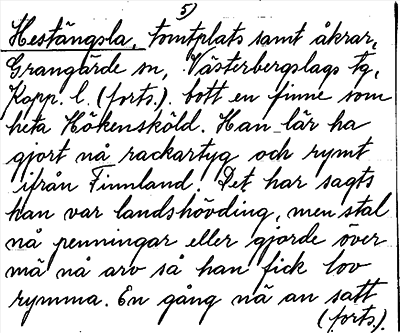 5)
Hestängsla, tomtplats samt åkrar,
Grangärde sn, Västerbergslags tg,
Kopp. l. (forts.). bott en finne som
heta Hökensköld. Han lär ha
gjort nå rackartyg och rymt
ifrån Finnland. Det har sagts
han var landshövding, men stal
nå penningar eller gjorde över
mä nå arv så han fick lov
rymma. En gång nä an satt
(forts).